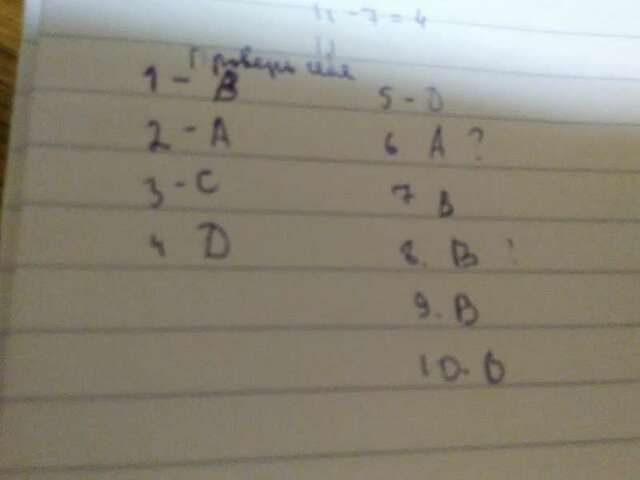 11 - 7 = 4
Проверь себя
1 - B
2 - A
3 - C
4 D
5 - D
6 A ?
7 B
8. B ?
9. B
10. D